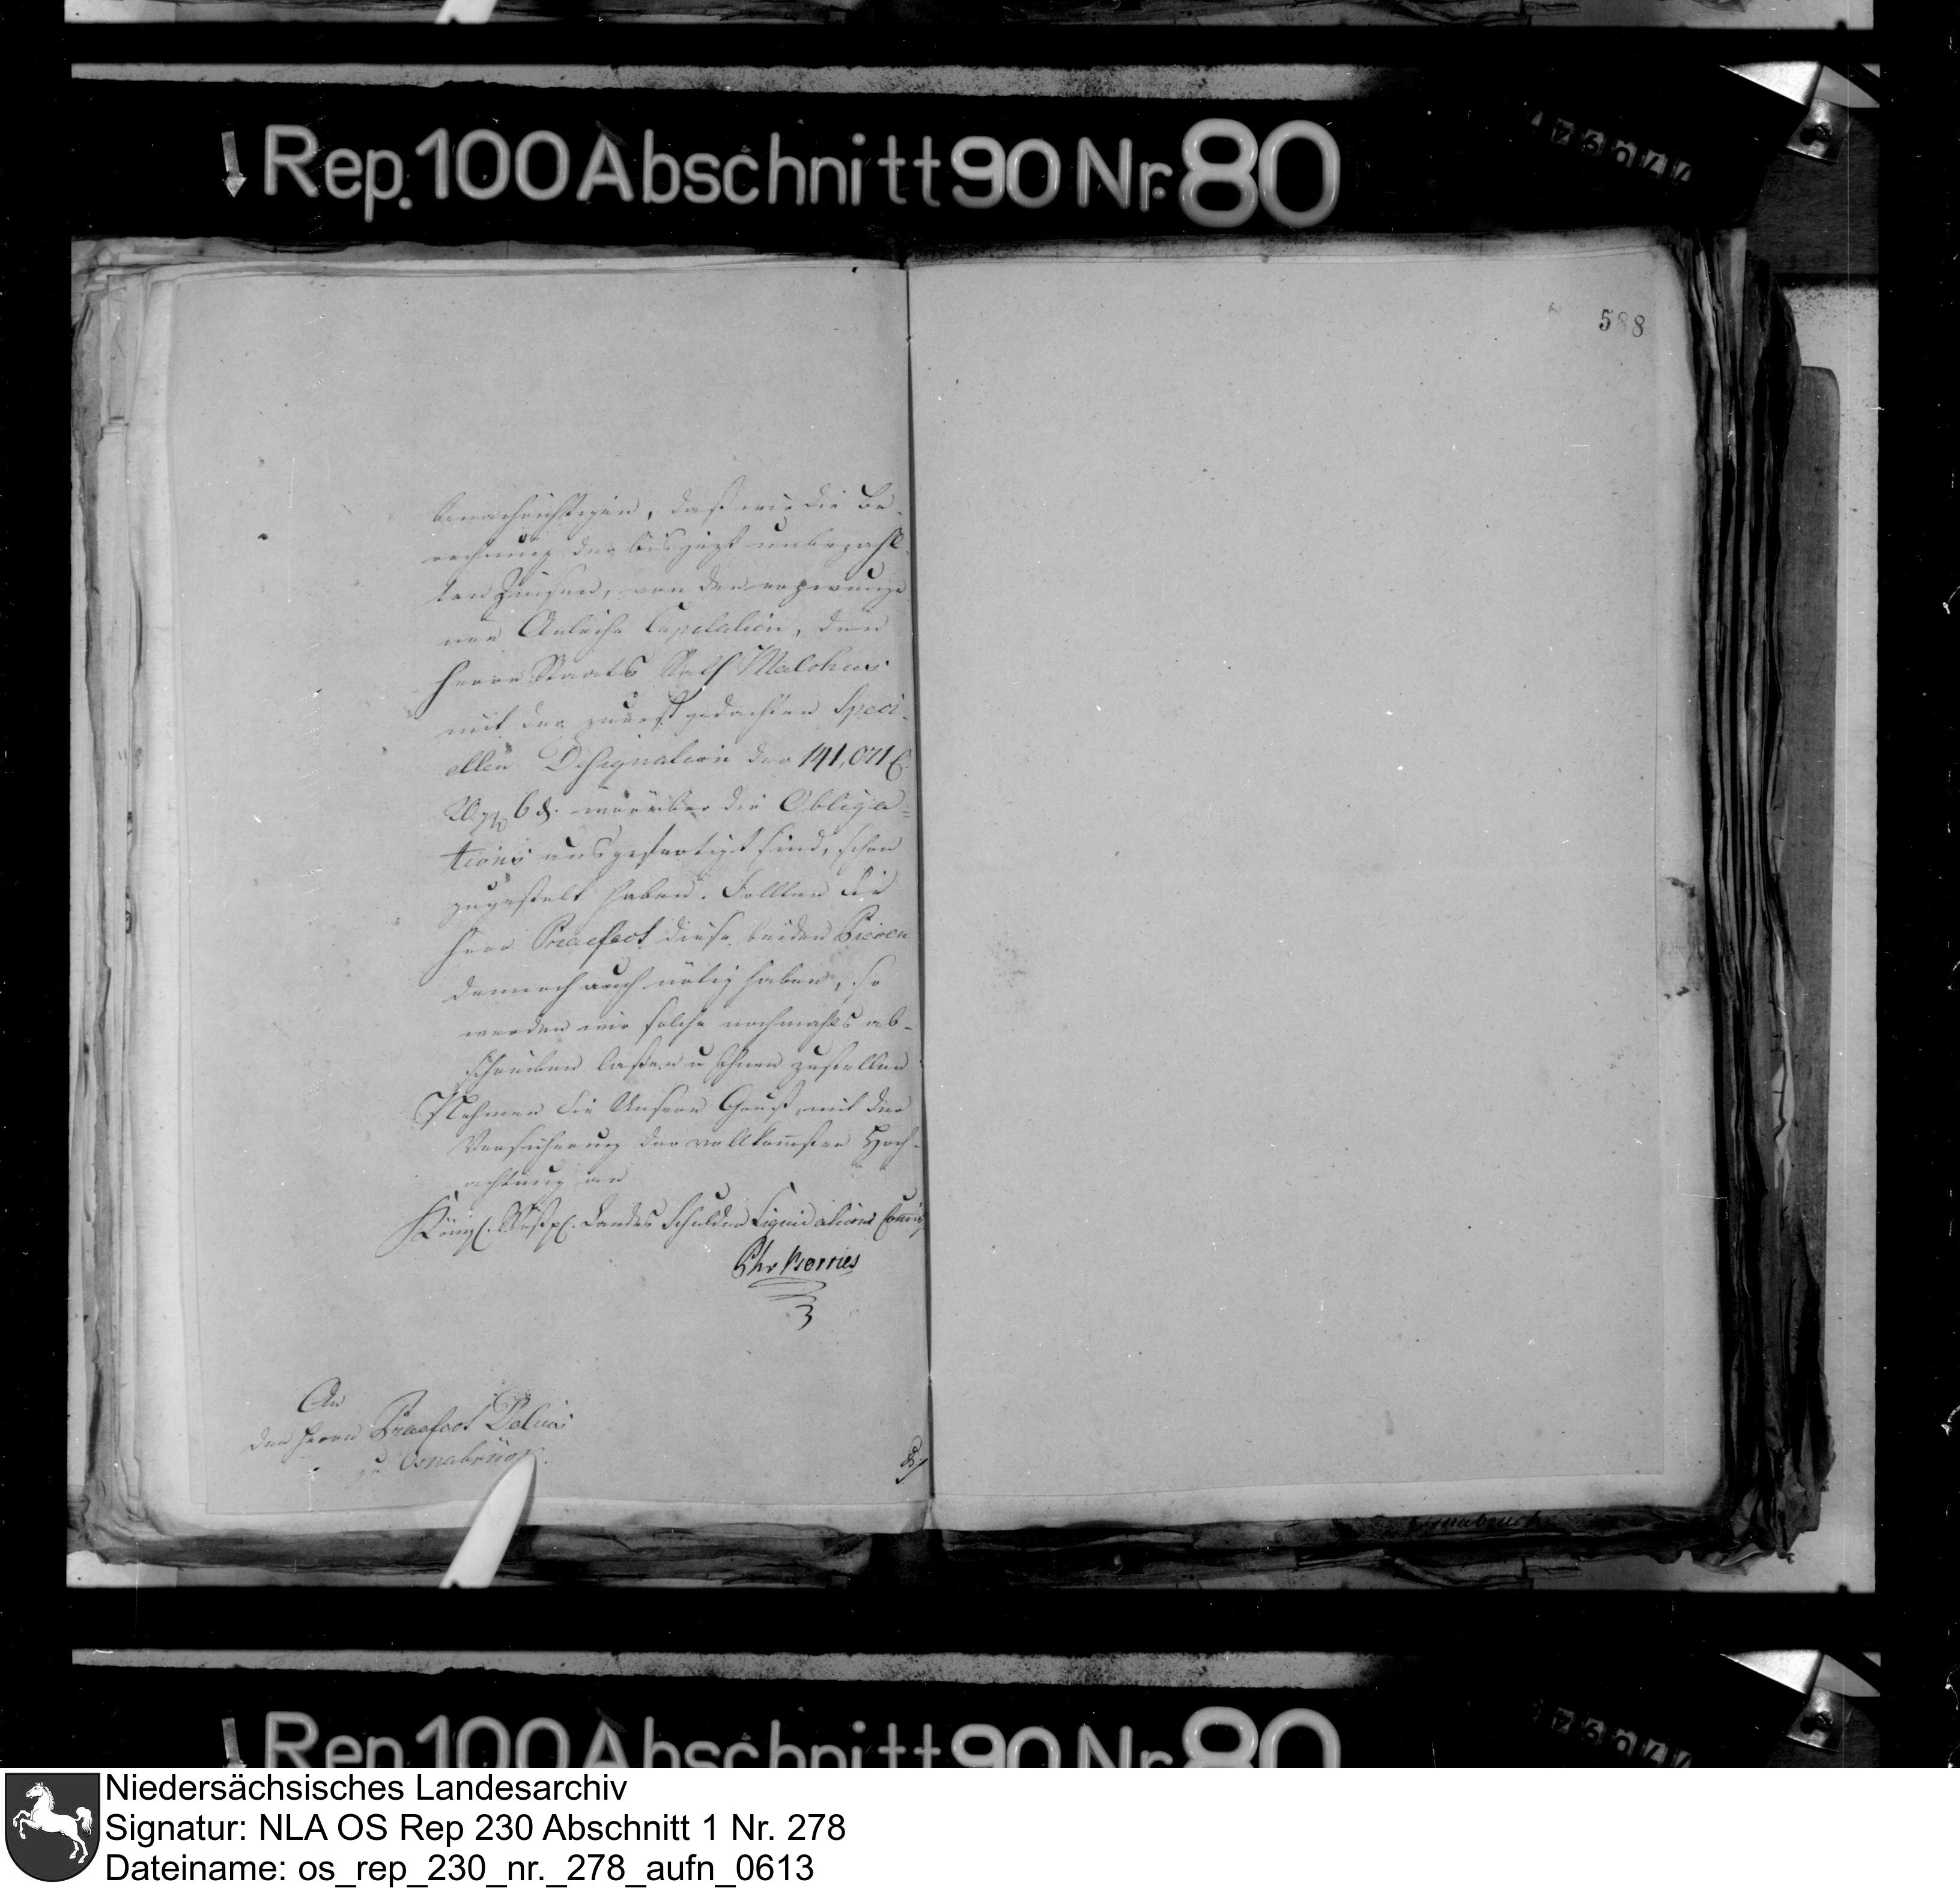 Rep. 100 Abschnitt 90 Nr. 80
588
benachrichtigen, daß wir die Be-
rechnung der bis jezt unbezahl-
ten Zinsen, von den erzwunge
nen Anleihe Capitalien, dem
Herrn Staats Rath Malchus
mit der zuerst gedachten Speci-
ellen Designation der 141,071
6 d. worüber die Obliga-
tions ausgefertigt sind, schon
zugestelt haben. Sollten Sie
Herr Praefect diese beiden Piecen
dennoch auch nötig haben, so
werden wir solche nochmahls ab-
schreiben laßen u Ihnen zustellen
Nehmen Sie Unsern Gruß, mit der
Versicherung der vollkomsten Hoch-
achtung an
Königl. Westpl. Landes Schulden Liquidations Comiß
v Borries
An
den Herrn Praefect Delius
zu Osnabrück.
Rep. 100 Abschnitt 90 Nr. 80
Niedersächsisches Landesarchiv
Signatur: NLA OS Rep 230 Abschnitt 1 Nr. 278
Dateiname: os_rep_230_nr._278_aufn_0613